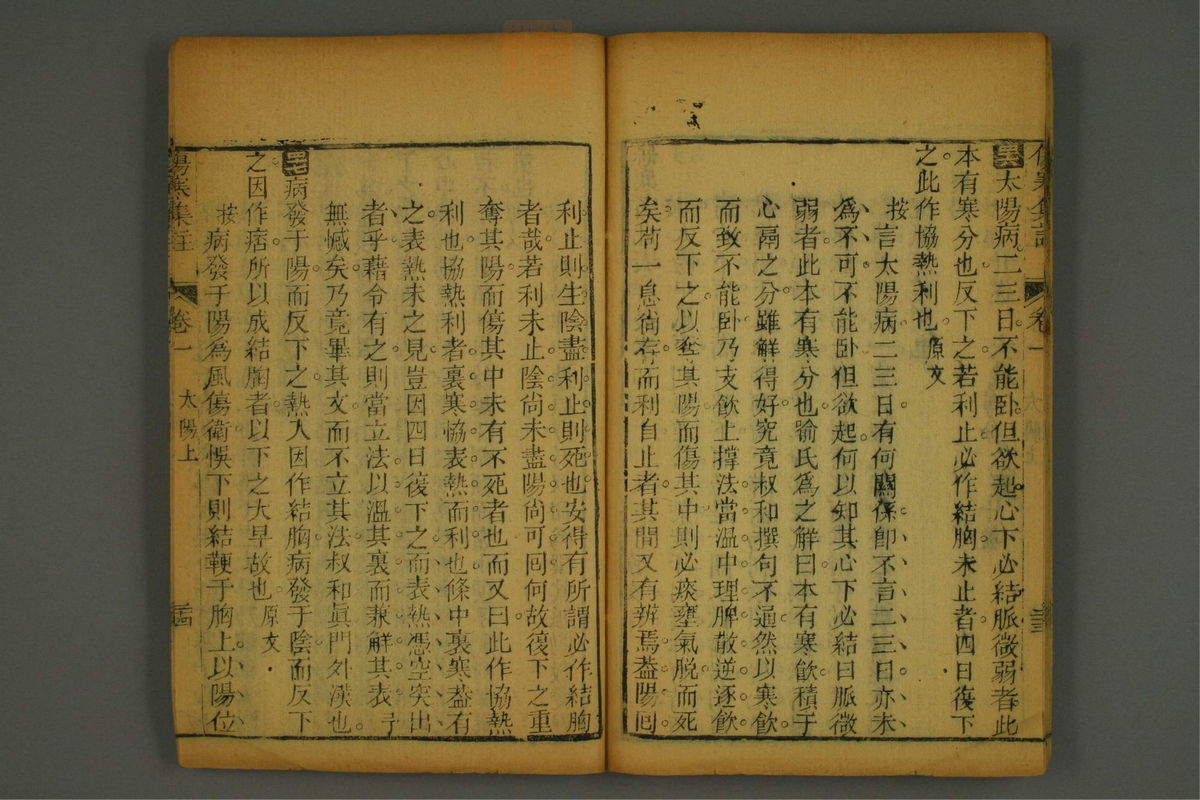 太陽病二三日不能臥但欲起心下必結脈微弱者此
本有寒分也反下之若利止必作結胸未止者四日復下
之此作協熱利也 原文
按言太陽病二三日有何關係卽不言二三日亦未
爲不可不能臥但欲起何以知其心下必結曰脈微
弱者此本有寒分也喻氏爲之解曰本有寒飲積于
心膈之分雖解得好究竟叔和撰句不通然以寒飲
而致不能臥乃支飲上撑法當溫中理脾散逆逐飲
而反下之以奪其陽而傷其中則必痰壅氣脫而死
矣苟一息尙存而利自止者其間又有辨焉葢陽囘
卷一
利止則生陰盡利止則死也安得有所謂必作結胸
者哉若利未止陰尙未盡陽尙可囘何故復下之重
奪其陽而傷其中未有不死者也而又曰此作協熱
利也協熱利者裏寒恊表熱而利也條中裏寒葢有
之表熱未之見豈因四日復下之而表熱憑空突出
者乎藉令有之則當立法以溫其裏而兼解其表
無憾矣乃竟畢其文而不立其法叔和眞門外漢也
病發于陽而反下之熱入因作結胸病發于陰而反下
之因作痞所以成結胸者以下之太早故也 原文
按病發于陽爲風傷衛悞下則結鞕于胸上以陽位
傷寒集註 卷一 太陽上